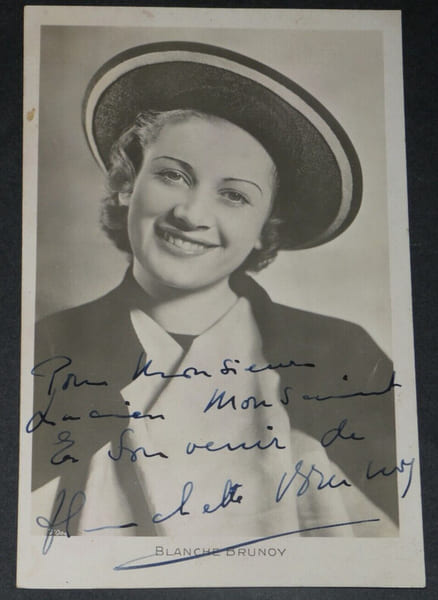 Pour Monsieur
Lucien Monsaint
En Souvenir de
Blanchette Brunoy
BLANCHE BRUNOY